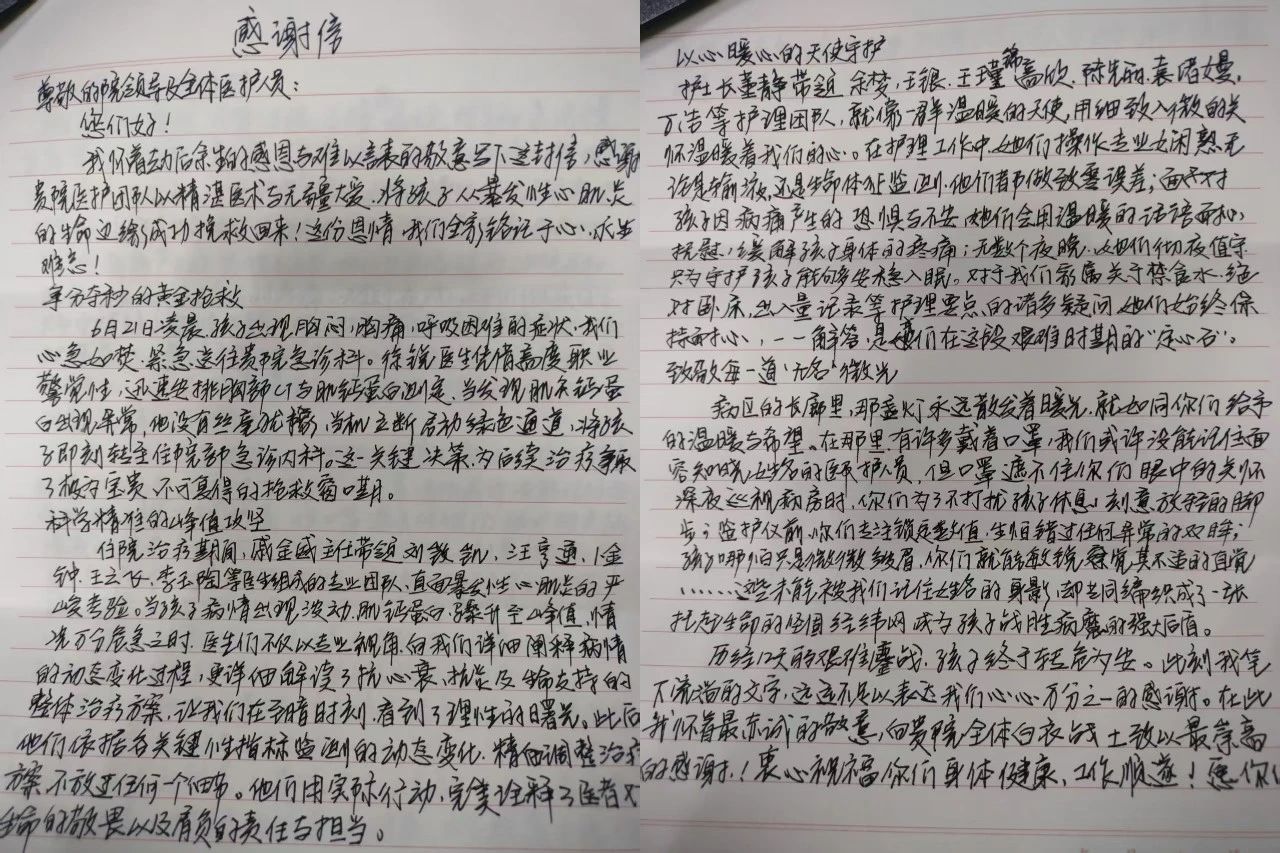 感谢信
尊敬的院领导及全体医护员：
您们好！
我怀着劫后余生的感恩与难以言表的敬意写下这封信，感谢
贵院医护团队以精湛医术与无疆大爱，将孩子从暴发性心肌炎
的生命边缘成功挽救回来！这份恩情，我们全家铭记于心，永生
难忘！
争分夺秒的黄金抢救
6月21日凌晨，孩子出现胸闷，胸痛，呼吸困难的症状，我们
心急如焚，紧急送往贵院急诊科。徐锐医生凭借高度职业
警觉性，迅速安排胸部CT与肌钙蛋白测定，当发现肌钙蛋
白出现异常，他没有丝毫犹豫，当机立断启动绿色通道，将孩
子即刻转至住院部急诊内科。这一关键决策，为后续治疗争取
了极为宝贵、不可复得的抢救窗口期。
科学精准的峰值攻坚
住院治疗期间，戚金威主任带领刘敏凯，汪亨通，金
钟，王立飞，李玉陶等医生组成的专业团队，直面暴发性心肌炎的严
峻考验。当孩子病情出现波动，肌钙蛋白骤升至峰值，情
况万分危急之时，医生们不仅以专业视角，向我们详细阐释病情
的动态变化过程，更详细解读了抗心衰，抗炎及生命支持的
整体治疗方案，让我们在至暗时刻，看到了理性的曙光。此后
他们依据各关键性指标监测的动态变化，精细调整治疗
方案，不放过任何一个细节。他们用实际行动，完美诠释了医者对
生命的敬畏以及肩负的责任与担当。
以心暖心的天使守护
护士长董静带领余梦，王银，王瑾，高欣，陈先丽，袁诺嫚，
万洁等护理团队，就像一群温暖的天使，用细致入微的关
怀温暖着我们的心。在护理工作中，她们操作专业娴熟，无
论是输液，还是生命体征监测，他们都做致零误差；面对
孩子因病痛产生的恐惧与不安，她们会用温暖的话语耐心
抚慰，缓解孩子身体的疼痛；无数个夜晚，她们彻夜值守
只为守护孩子能够安稳入眠。对于我们家属关于禁食水，绝
对卧床，出入量记录等护理要点的诸多疑问，她们始终保
持耐心，一一解答，是我们在这段艰难时期的“定心石”。
致敬每一道“无名”微光
病区的长廊里，那盏灯永远散发着暖光，就如同你们给予
的温暖与希望。在那里，有许多戴着口罩，我们或许没能记住面
容知晓姓名的医护员，但口罩遮不住你们眼中的关怀
深夜巡视病房时，你们为了不打扰孩子休息，刻意放轻的脚
步；监护仪前，你们专注锁定数值，生怕错过任何异常的双眸；
孩子哪怕只是微微皱眉，你们就能敏锐察觉其不适的自觉
……这些未能被我们记住姓名的身影，却共同编织成了一张
托起生命的坚固经纬网，成为孩子战胜病魔的强大后盾。
历经12天的艰难鏖战，孩子终于转危为安。此刻我笔
下流淌的文字，远远不足以表达我们心中万分之一的感谢。在此
我怀着最赤诚的敬意，向贵院全体白衣战士致以最崇高
的感谢！衷心祝福你们身体健康，工作顺遂！愿你们